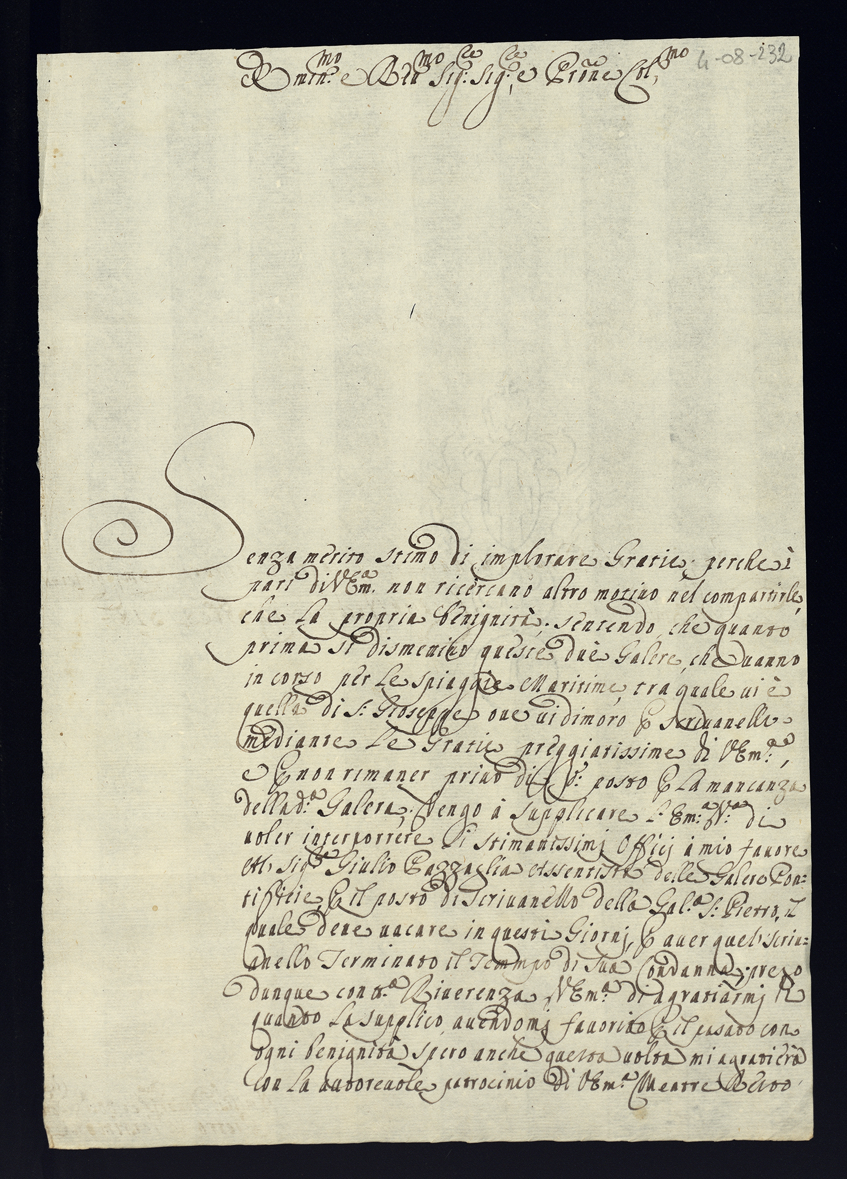 Emin.mo e R.mo Sig.re Sig.re e Prone Col.mo
4-08-232
Senza merito stimo di implorare Gratie, perche i
pari di VEm.a non ricercano altro motivo nel compartirle,
che La propria benignità; sentendo, che quanto
prima si dismenino queste due Galere, che vanno
in corso per Le spiaggie Maritime, tra quale vi è
quella di S. Gioseppe ove vi dimoro P Scrivanello
mediante Le Gratie preggiatissime di VEm.a,
e P non rimaner privo di posto P La mancanza
della d.a Galera, Vengo à supplicare L'Em.a V.a di
voler interporrere Li stimatissimj Officij à mio favore
Al Sig.r Giulio Pazzaglia Assentista delle Galere Pon:
tificie, P il posto di Scrivanello della Gal.a S. Pietro, il
quale deve vacare in questi Giornj, P aver quel scriv:
anello Terminato il Temmpo di sua Condanna, prego
dunque con Riverenza VEm.a di agratiarmj
quanto La supplico, avendomj favorito P il pasato con
ogni benignità, spero anche questa volta mi agratierà
con La autorevole patrocinio di VEm.a Mentre Resto